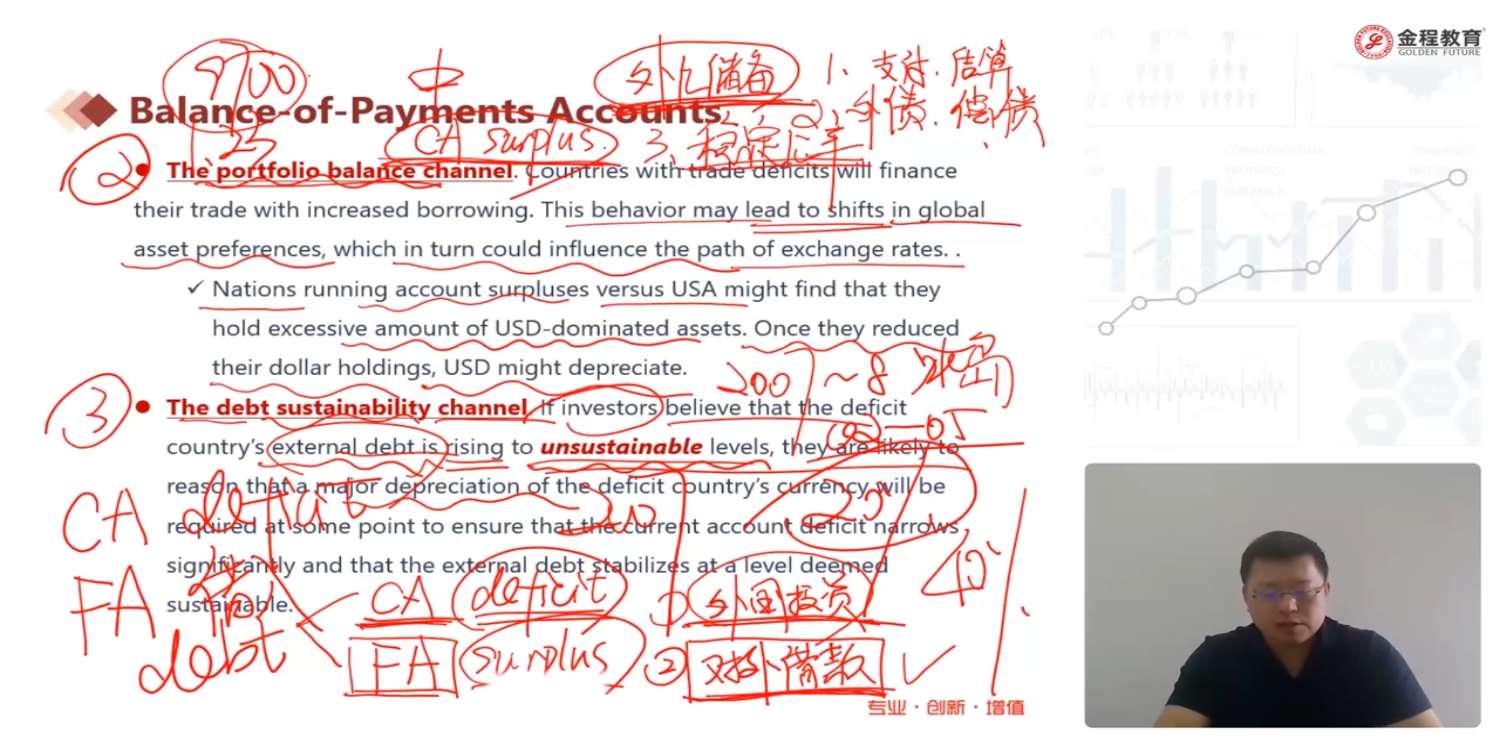 金程教育
GOLDEN FUTURE
9700 中 外汇储备 1、支付、结算
Balance-of-Payments Accounts
2、外债、偿债
1.25 CA surplus. 3、稳定汇率
② The portfolio balance channel. Countries with trade deficits will finance
their trade with increased borrowing. This behavior may lead to shifts in global
asset preferences, which in turn could influence the path of exchange rates. .
✓ Nations running account surpluses versus USA might find that they
hold excessive amount of USD-dominated assets. Once they reduced
their dollar holdings, USD might depreciate.
2007~8 冰岛
③ The debt sustainability channel. If investors believe that the deficit
country's external debt is rising to unsustainable levels, they are likely to
reason that a major depreciation of the deficit country's currency will be
required at some point to ensure that the current account deficit narrows
significantly and that the external debt stabilizes at a level deemed
sustainable.
CA deficit
FA 借 CA deficit ① 外国投资
debt FA surplus ② 对外借款 ✓
专业·创新·增值